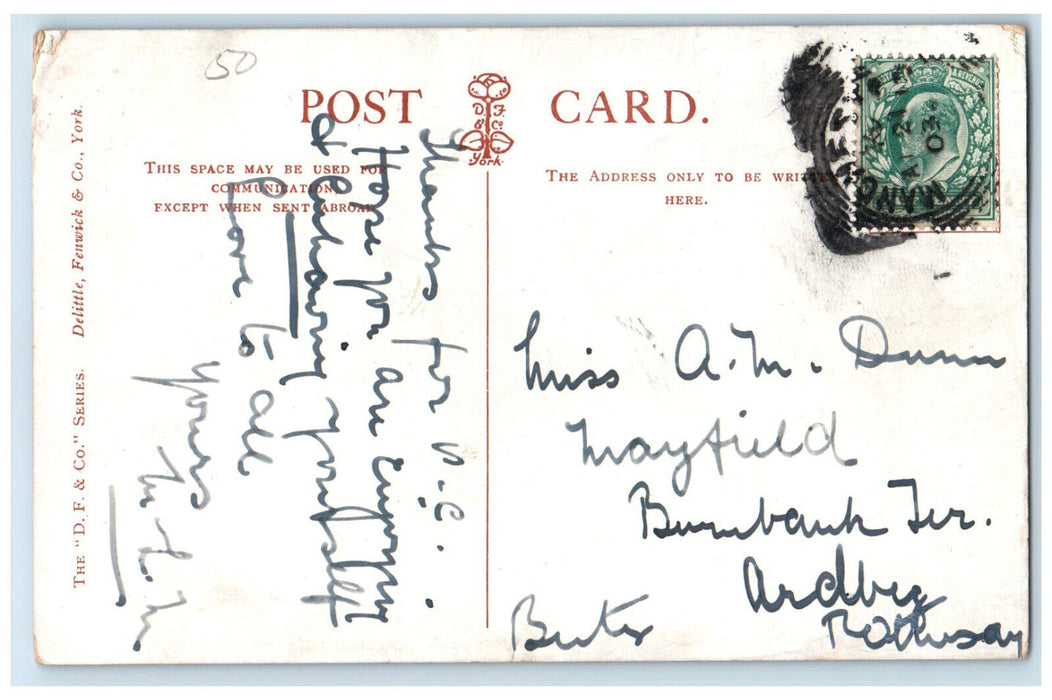 50
POST CARD.
D. F. & Co. York.
THIS SPACE MAY BE USED FOR
COMMUNICATION
EXCEPT WHEN SENT ABROAD.
THE ADDRESS ONLY TO BE WRITTEN
HERE.
THE "D. F. & CO." SERIES. Delittle, Fenwick & Co., York.
Thanks for P.C.
Hope you are enjoying
& enjoying yourself
Love to all
Yours
POSTAGE & REVENUE
MANCHESTER
03
Miss A. M. Dunn
Mayfield
Burnbank Ter.
Ardbeg
Rothesay
Bute